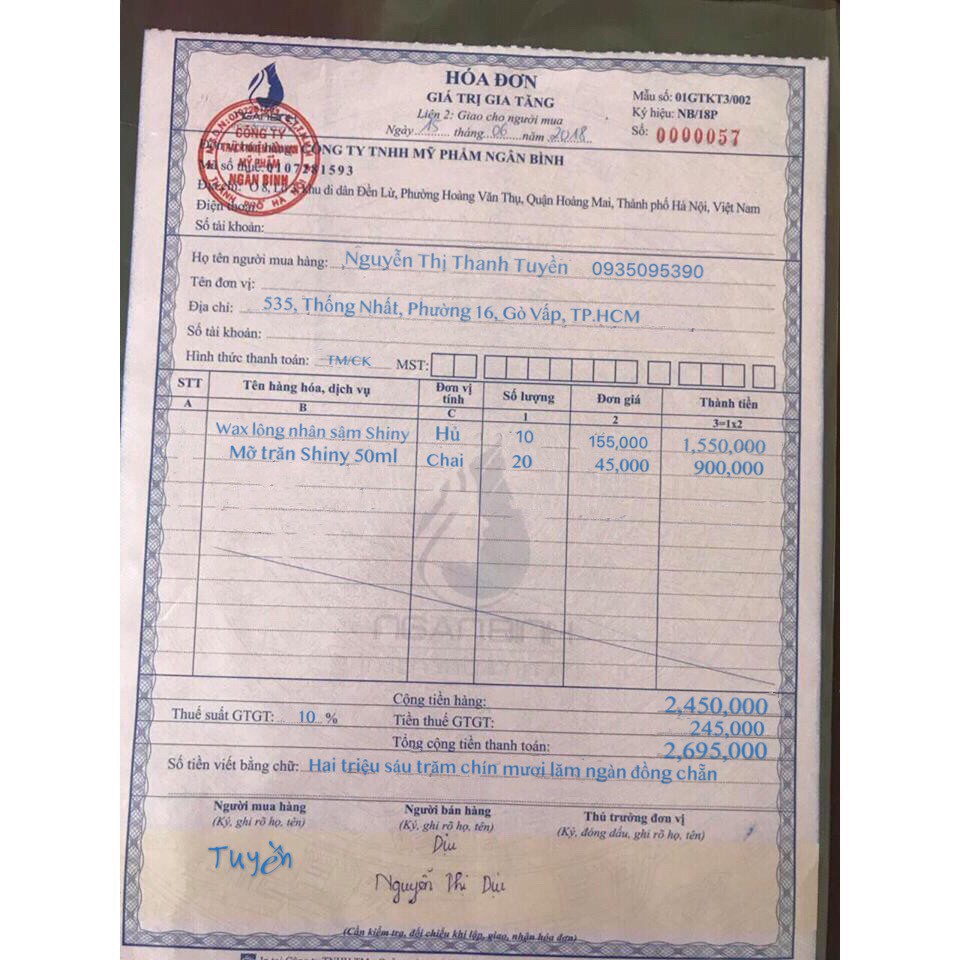 HÓA ĐƠN
GIÁ TRỊ GIA TĂNG
Liên 2: Giao cho người mua
Ngày 15 tháng 06 năm 2018
Mẫu số: 01GTKT3/002
Ký hiệu: NB/18P
Số: 0000057
CÔNG TY
MỸ PHẨM
NGÂN BÌNH
THÀNH PHỐ HÀ NỘI
CÔNG TY TNHH MỸ PHẨM NGÂN BÌNH
Mã số thuế: 0107281593
Địa chỉ: khu di dân Đền Lừ, Phường Hoàng Văn Thụ, Quận Hoàng Mai, Thành phố Hà Nội, Việt Nam
Điện thoại:
Số tài khoản:
Họ tên người mua hàng: Nguyễn Thị Thanh Tuyền 0935095390
Tên đơn vị:
Địa chỉ: 535, Thống Nhất, Phường 16, Gò Vấp, TP.HCM
Số tài khoản:
Hình thức thanh toán: TM/CK MST:
STT Tên hàng hóa, dịch vụ Đơn vị tính Số lượng Đơn giá Thành tiền
A B C 1 2 3=1x2
Wax lông nhân sâm Shiny Hủ 10 155,000 1,550,000
Mỡ trăn Shiny 50ml Chai 20 45,000 900,000
NGANBINH
Cộng tiền hàng: 2,450,000
Thuế suất GTGT: 10 % Tiền thuế GTGT: 245,000
Tổng cộng tiền thanh toán: 2,695,000
Số tiền viết bằng chữ: Hai triệu sáu trăm chín mươi lăm ngàn đồng chẵn
Người mua hàng Người bán hàng Thủ trưởng đơn vị
(Ký, ghi rõ họ, tên) (Ký, ghi rõ họ, tên) (Ký, đóng dấu, ghi rõ họ, tên)
Tuyền Dịu
Nguyễn Thị Dịu
(Cần kiểm tra, đối chiếu khi lập, giao, nhận hóa đơn)